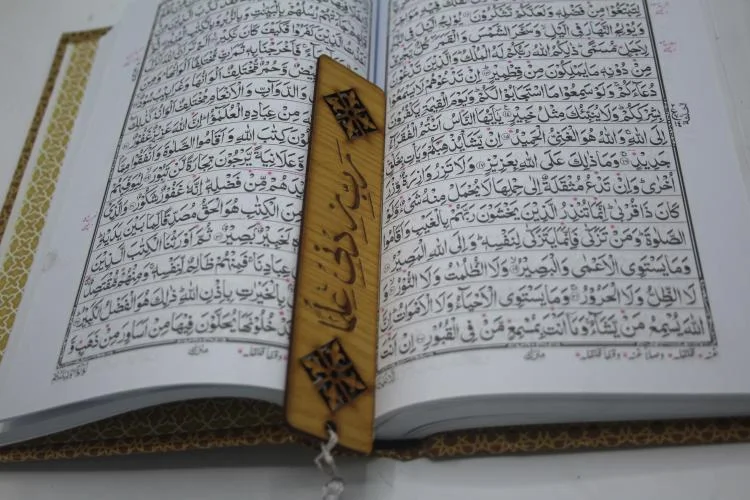 لِتَبْتَغُوْا مِنْ فَضْلِهٖ وَلَعَلَّكُمْ تَشْكُرُوْنَ يُوْلِجُ الَّيْلَ فِى
وَيُوْلِجُ النَّهَارَ فِى الَّيْلِ وَسَخَّرَ الشَّمْسَ وَالْقَمَرَ كُلٌّ
لِاَجَلٍ مُّسَمًّى ذٰلِكُمُ اللّٰهُ رَبُّكُمْ لَهُ الْمُلْكُ وَالَّذِيْنَ تَدْعُوْنَ
مِنْ دُوْنِهٖ مَا يَمْلِكُوْنَ مِنْ قِطْمِيْرٍ اِنْ تَدْعُوْهُمْ لَا يَسْمَعُوْا
دُعَآءَكُمْ وَلَوْ سَمِعُوْا مَا اسْتَجَابُوْا لَكُمْ وَيَوْمَ الْقِيٰمَةِ يَكْفُرُوْنَ
بِشِرْكِكُمْ وَلَا يُنَبِّئُكَ مِثْلُ خَبِيْرٍ يٰٓاَيُّهَا النَّاسُ اَنْتُمُ الْفُقَرَآءُ
اِلَى اللّٰهِ وَاللّٰهُ هُوَ الْغَنِيُّ الْحَمِيْدُ اِنْ يَّشَاْ يُذْهِبْكُمْ وَيَاْتِ بِخَلْقٍ
جَدِيْدٍ وَمَا ذٰلِكَ عَلَى اللّٰهِ بِعَزِيْزٍ وَلَا تَزِرُ وَازِرَةٌ وِّزْرَ
اُخْرٰى وَاِنْ تَدْعُ مُثْقَلَةٌ اِلٰى حِمْلِهَا لَا يُحْمَلْ مِنْهُ شَيْءٌ وَّلَوْ
كَانَ ذَا قُرْبٰى اِنَّمَا تُنْذِرُ الَّذِيْنَ يَخْشَوْنَ رَبَّهُمْ بِالْغَيْبِ وَاَقَامُوا
الصَّلٰوةَ وَمَنْ تَزَكّٰى فَاِنَّمَا يَتَزَكّٰى لِنَفْسِهٖ وَاِلَى اللّٰهِ الْمَصِيْرُ
وَمَا يَسْتَوِى الْاَعْمٰى وَالْبَصِيْرُ وَلَا الظُّلُمٰتُ وَلَا النُّوْرُ وَ
لَا الظِّلُّ وَلَا الْحَرُوْرُ وَمَا يَسْتَوِى الْاَحْيَآءُ وَلَا الْاَمْوَاتُ اِنَّ
اللّٰهَ يُسْمِعُ مَنْ يَّشَآءُ وَمَا اَنْتَ بِمُسْمِعٍ مَّنْ فِى الْقُبُوْرِ اِنْ اَنْتَ
رَبِّ زِدْنِي عِلْمًا
الَّذِيْنَ كَفَرُوْا فَكَيْفَ كَانَ
فَاَخْرَجْنَا بِهٖ ثَمَرٰتٍ مُّخْتَلِفًا اَلْوَانُهَا
بِيْضٌ وَّحُمْرٌ مُّخْتَلِفٌ اَلْوَانُهَا وَغَرَابِيْبُ سُوْدٌ
وَالدَّوَآبِّ وَالْاَنْعَامِ مُخْتَلِفٌ اَلْوَانُهٗ كَذٰلِكَ
مِنْ عِبَادِهِ الْعُلَمٰٓؤُا اِنَّ اللّٰهَ عَزِيْزٌ غَفُوْرٌ
كِتٰبَ اللّٰهِ وَاَقَامُوا الصَّلٰوةَ وَاَنْفَقُوْا مِمَّا
وَّعَلَانِيَةً يَّرْجُوْنَ تِجَارَةً لَّنْ تَبُوْرَ لِيُوَفِّيَهُمْ
مِّنْ فَضْلِهٖ اِنَّهٗ غَفُوْرٌ شَكُوْرٌ وَالَّذِيْ
مِنَ الْكِتٰبِ هُوَ الْحَقُّ مُصَدِّقًا لِّمَا بَيْنَ يَدَيْهِ
لَخَبِيْرٌ بَصِيْرٌ ثُمَّ اَوْرَثْنَا الْكِتٰبَ الَّذِيْنَ
عِبَادِنَا فَمِنْهُمْ ظَالِمٌ لِّنَفْسِهٖ وَمِنْهُمْ مُّقْتَصِدٌ
بِالْخَيْرٰتِ بِاِذْنِ اللّٰهِ ذٰلِكَ هُوَ الْفَضْلُ الْكَبِيْرُ
يَّدْخُلُوْنَهَا يُحَلَّوْنَ فِيْهَا مِنْ اَسَاوِرَ مِنْ ذَهَبٍ وَّ